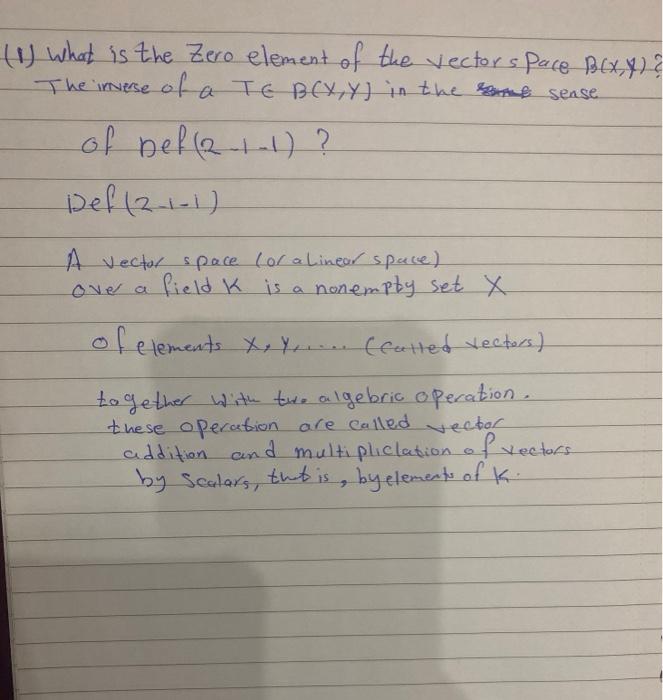 (1) What is the Zero element of the vector space B(X,Y)?
The inverse of a T∈ B(X,Y) in the sense
of Def(2-1-1) ?
Def(2-1-1)
A vector space (or a linear space)
over a field K is a nonempty set X
of elements x, y, ..... (called vectors)
together with two algebric operation.
these operation are called vector
addition and multipliclation of vectors
by Scalars, that is, by elements of K.